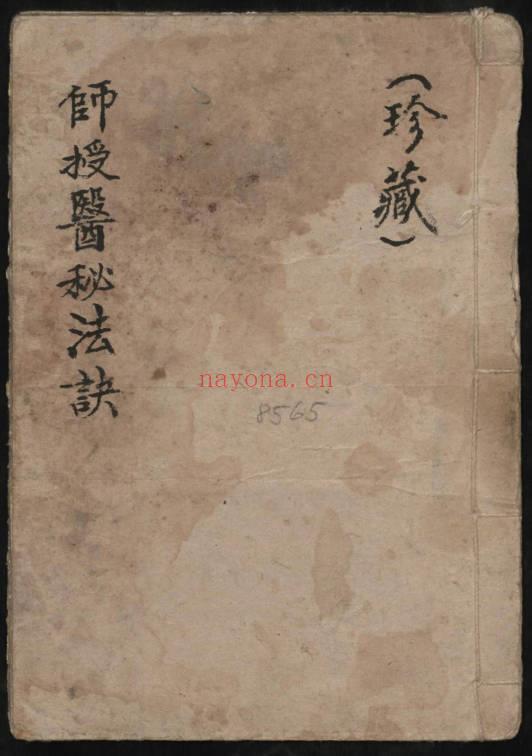 （珍藏）
師授醫秘法訣
nayona.cn
8565